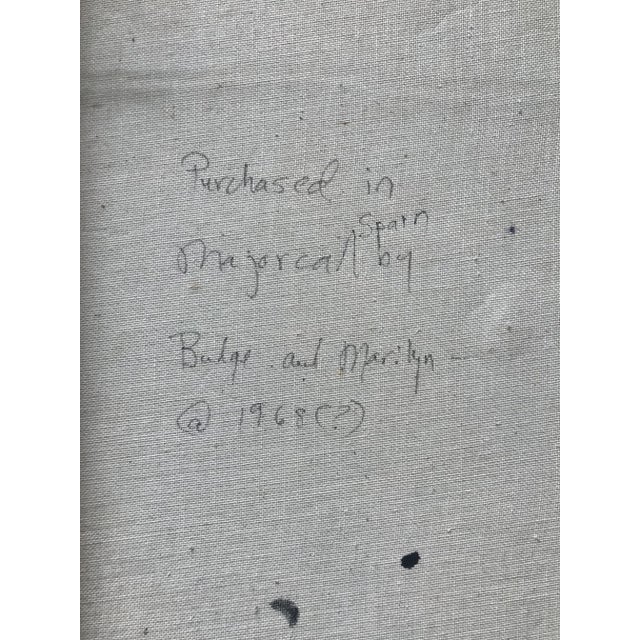 Purchased in
Majorca Spain by
Budge and Marilyn -
@ 1968(?)